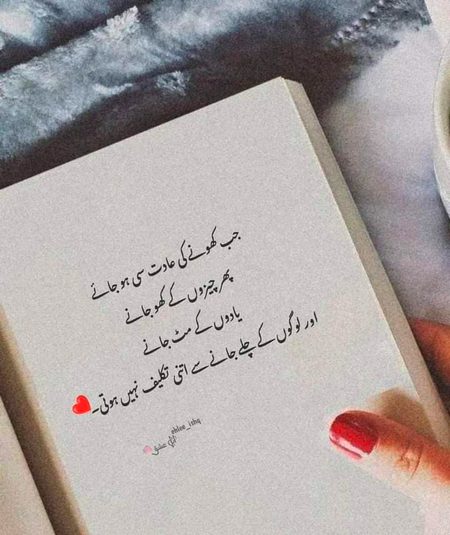 جب کھونے کی عادت سی ہو جائے
پھر چیزوں کے کھو جانے
یادوں کے مٹ جانے
اور لوگوں کے چلے جانے سے اتنی تکلیف نہیں ہوتی۔❤
ehlee_ishq
اہلِ عشق